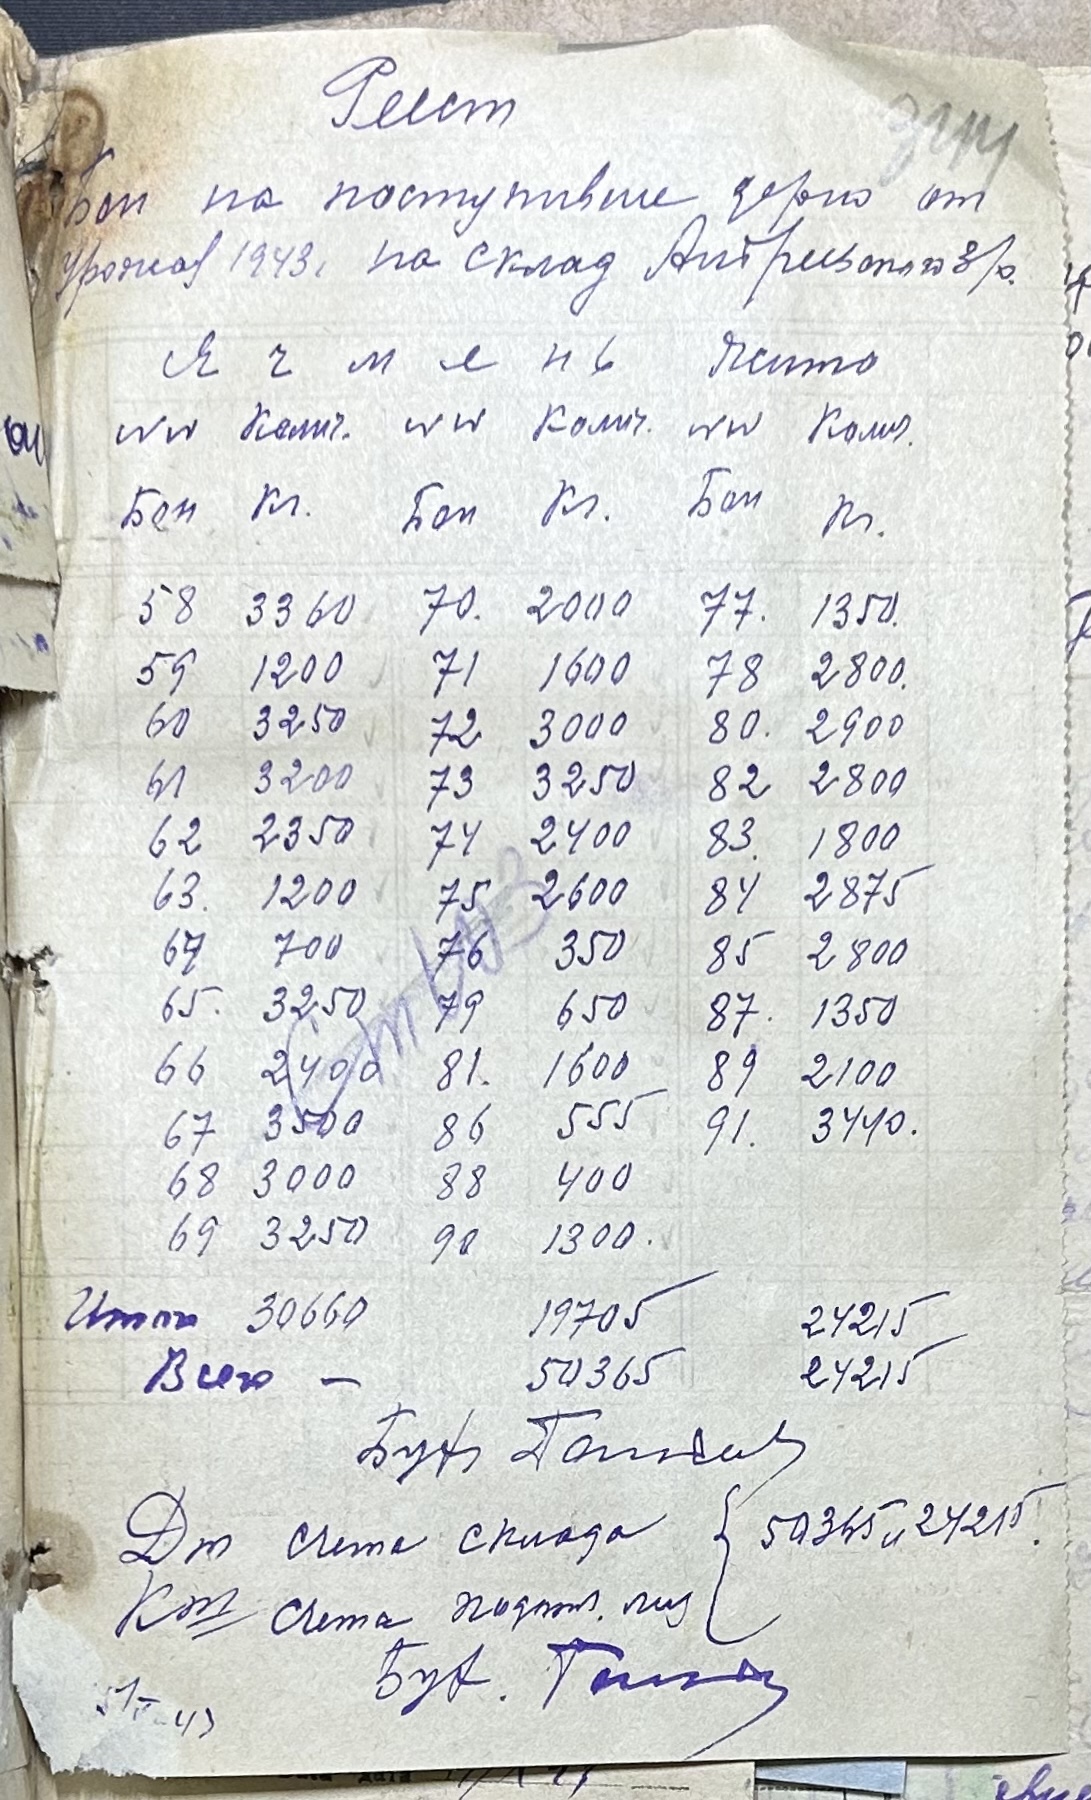 Реест
Бон на поступивше зерно от
урожая 1943г. на склад
Я ч м е н ь Жито
№№ Колич. №№ Колич. №№ Колич.
Бон Кг. Бон Кг. Бон Кг.
58 3360 70. 2000 77. 1350.
59 1200 71 1600 78 2800.
60 3250 72 3000 80. 2900
61 3200 73 3250 82 2800
62 2350 74 2400 83. 1800
63. 1200 75 2600 84 2875
64 700 76 350 85 2800
65. 3250 79 650 87. 1350
66 2400 81. 1600 89 2100
67 3500 86 555 91. 3440.
68 3000 88 400
69 3250 90 1300.
Итого 30660 19705 24215
Всего — 50365 24215
Бух
Дт счета склада { 50365 и 24215.
Кт счета подотч. лиц
Бух.